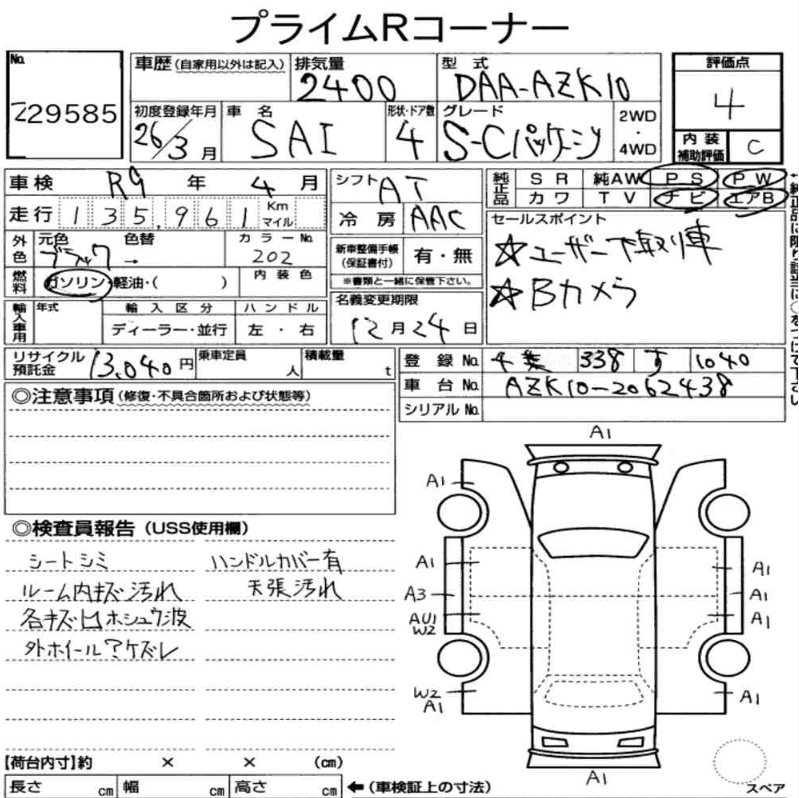 プライムRコーナー
No. 29585
車歴 (自家用以外は記入)
排気量 2400
型式 DAA-AZK10
評価点 4
初度登録年月 26/3月
車名 SAI
形状・ドア数 4
グレード S-Cパッケージ
2WD・4WD
内装補助評価 C
車検 R9年4月
シフト AT
純正品 SR 純AW PS PW
カワ TV ナビ エアB
走行 135,961 Km マイル
冷房 AAC
セールスポイント
☆ユーザー下取り車
☆Bカメラ
外色 元色 ブラック 色替 → カラーNo. 202
新車整備手帳(保証書付) 有・無
※書類と一緒に保管下さい。
燃料 ガソリン・軽油・( )
内装色
名義変更期限 12月24日
輸入車用 年式 輸入区分 ハンドル
ディーラー・並行 左・右
リサイクル預託金 13,040円
乗車定員 人
積載量 t
登録No. 338 す 1040
車台No. AZK10-2062438
シリアルNo.
◎注意事項(修復・不具合箇所および状態等)
◎検査員報告(USS使用欄)
シートシミ ハンドルカバー有
ルーム内キズ汚れ 天張汚れ
各キズ凹ホシュウ波
外ホイールアケズレ
A1
A1 A1
A1 A1
A3 A1
AU1 W2 A1
W2 A1 A1
A1
スペア
【荷台内寸】約 × × (cm)
長さ cm 幅 cm 高さ cm ←(車検証上の寸法)